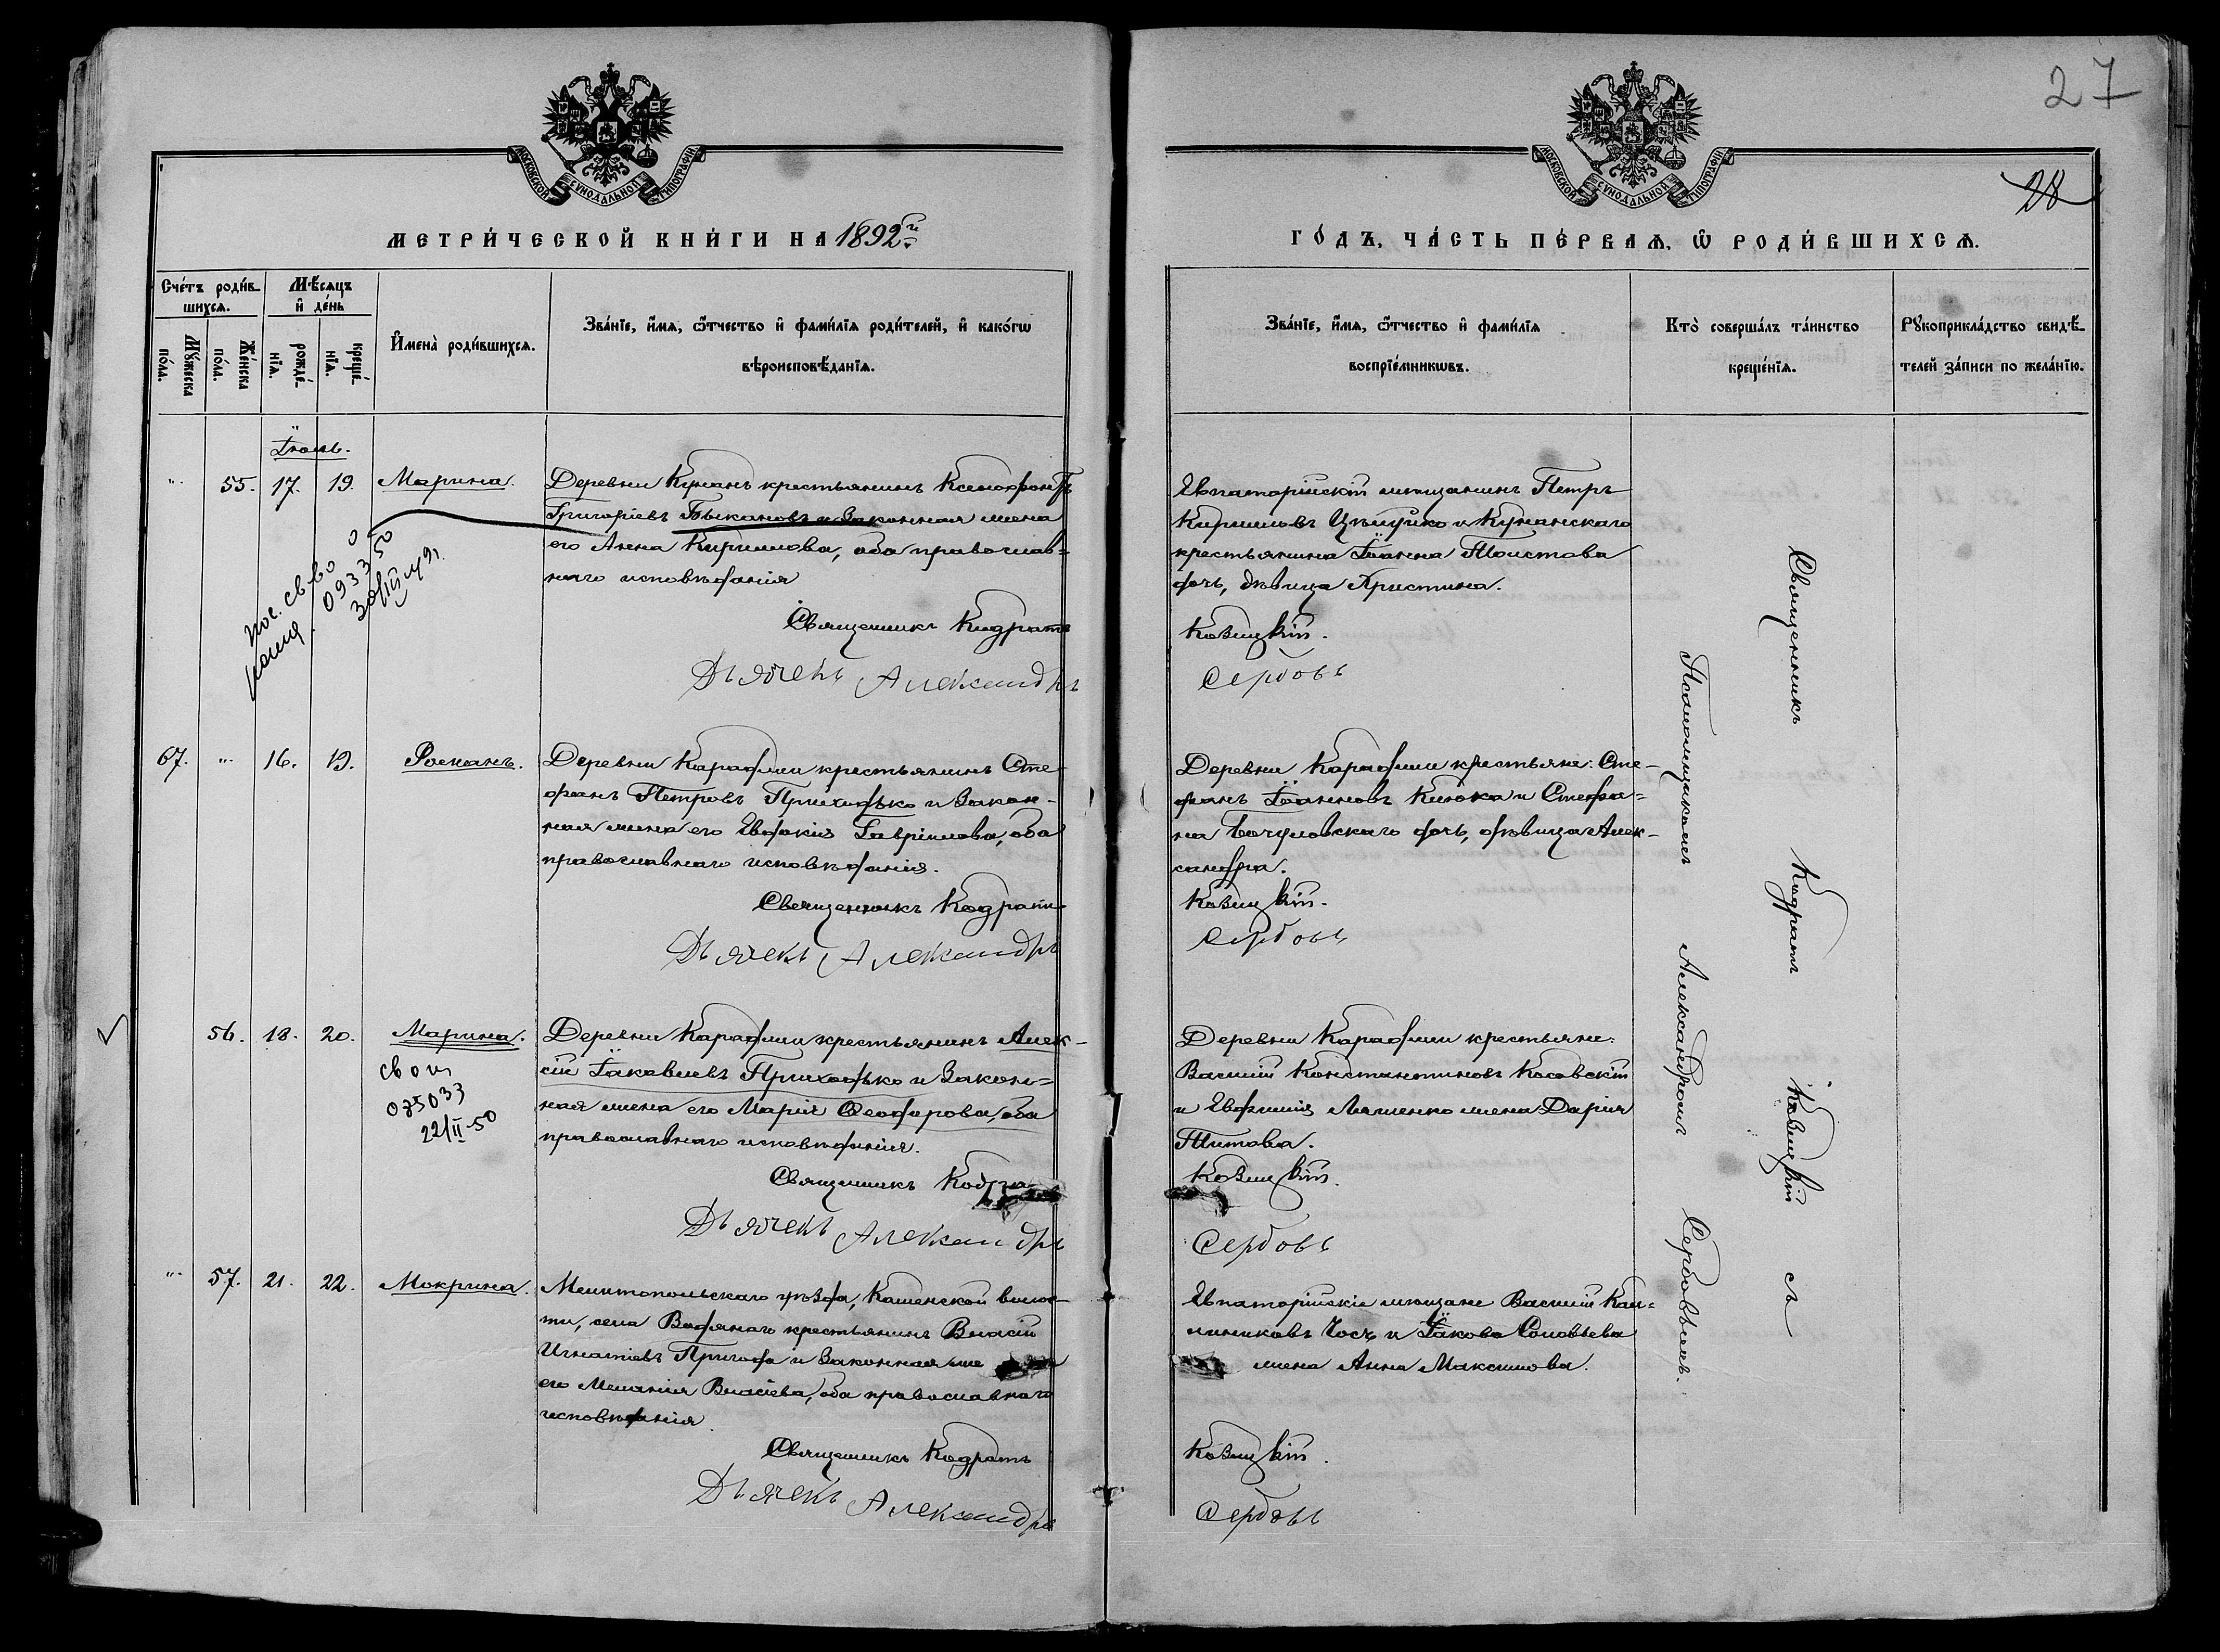 27
28
МОСКОВСКОЙ СѴНОДАЛЬНОЙ ТИПОГРАФІИ
МОСКОВСКОЙ СѴНОДАЛЬНОЙ ТИПОГРАФІИ
МЕТРИ́ЧЕСКОЙ КНИ́ГИ НА 1892й
ГО́ДЪ, ЧА́СТЬ ПЕ́РВАѦ, Ѡ҆ РОДИ́ВШИХСѦ.
Сче́тъ роди́в-
шихсѧ.
Мꙋ́жеска
по́ла.
Же́нска
по́ла.
Мѣ́сѧцъ
и҆ де́нь
рожде́-
нїѧ.
креще́-
нїѧ.
И҆мена̀ роди́вшихсѧ.
Зва́нїе, и҆́мѧ, ѻ҆́тчество и҆ фами́лїѧ роди́телей, и҆ како́гѡ
вѣроисповѣ́данїѧ.
Зва́нїе, и҆́мѧ, ѻ҆́тчество и҆ фами́лїѧ
воспрїе́мникѡвъ.
Кто̀ соверша́лъ та́инство
креще́нїѧ.
Рꙋкоприкла́дство свидѣ́-
телей за́писи по жела́нїю.
Іюль.
55. 17. 19. Марина.
Деревни Кунанъ крестьянинъ Ксенофонтъ
Григоріевъ Быкановъ и законная жена
его Анна Кириллова, оба православ-
наго исповѣданія
Священникъ Кодратъ
Дьячекъ Александръ
Евпаторійскій мѣщанинъ Петръ
Кирилловъ и Кунанскаго
крестьянина Іоанна Толстова
дочь, дѣвица Христина.
Козицкій.
Сербовъ
093350
67. 16. 19. Романъ.
Деревни Караджи крестьянинъ Сте-
фанъ Петровъ Приходько и закон-
ная жена его Евдокія Гавріилова, оба
православнаго исповѣданія.
Священникъ Кодратъ
Дьячекъ Александръ
Деревни Караджи крестьяне: Сте-
фанъ Іоанновъ Клюка и Стефа-
на дочь, дѣвица Алек-
сандра.
Козицкій.
Сербовъ
56. 18. 20. Марина.
035033
22/II-50
Деревни Караджи крестьянинъ Алек-
сій Іаковлевъ Приходько и закон-
ная жена его Марія Ѳеодорова, оба
православнаго исповѣданія.
Священникъ Кодра
Дьячекъ Александръ
Деревни Караджи крестьяне:
Василій Константиновъ Косовскій
и Евфимія Ляшенко жена Дарія
Титова.
Козицкій.
Сербовъ
57. 21. 22. Мокрина.
Мелитопольскаго уѣзда, Каменской волос-
ти, села Водянаго крестьянинъ Власій
Игнатіевъ Пригода и законная же
его Меланія Власіева, оба православнаго
исповѣданія.
Священникъ Кодратъ
Дьячекъ Александръ
Евпаторійскіе мѣщане Василій Кал-
линиковъ и Іакова Соловьева
жена Анна Максимова.
Козицкій.
Сербовъ
Священникъ Кодратъ Козицкій съ
Псаломщикомъ Александромъ Сербовымъ.